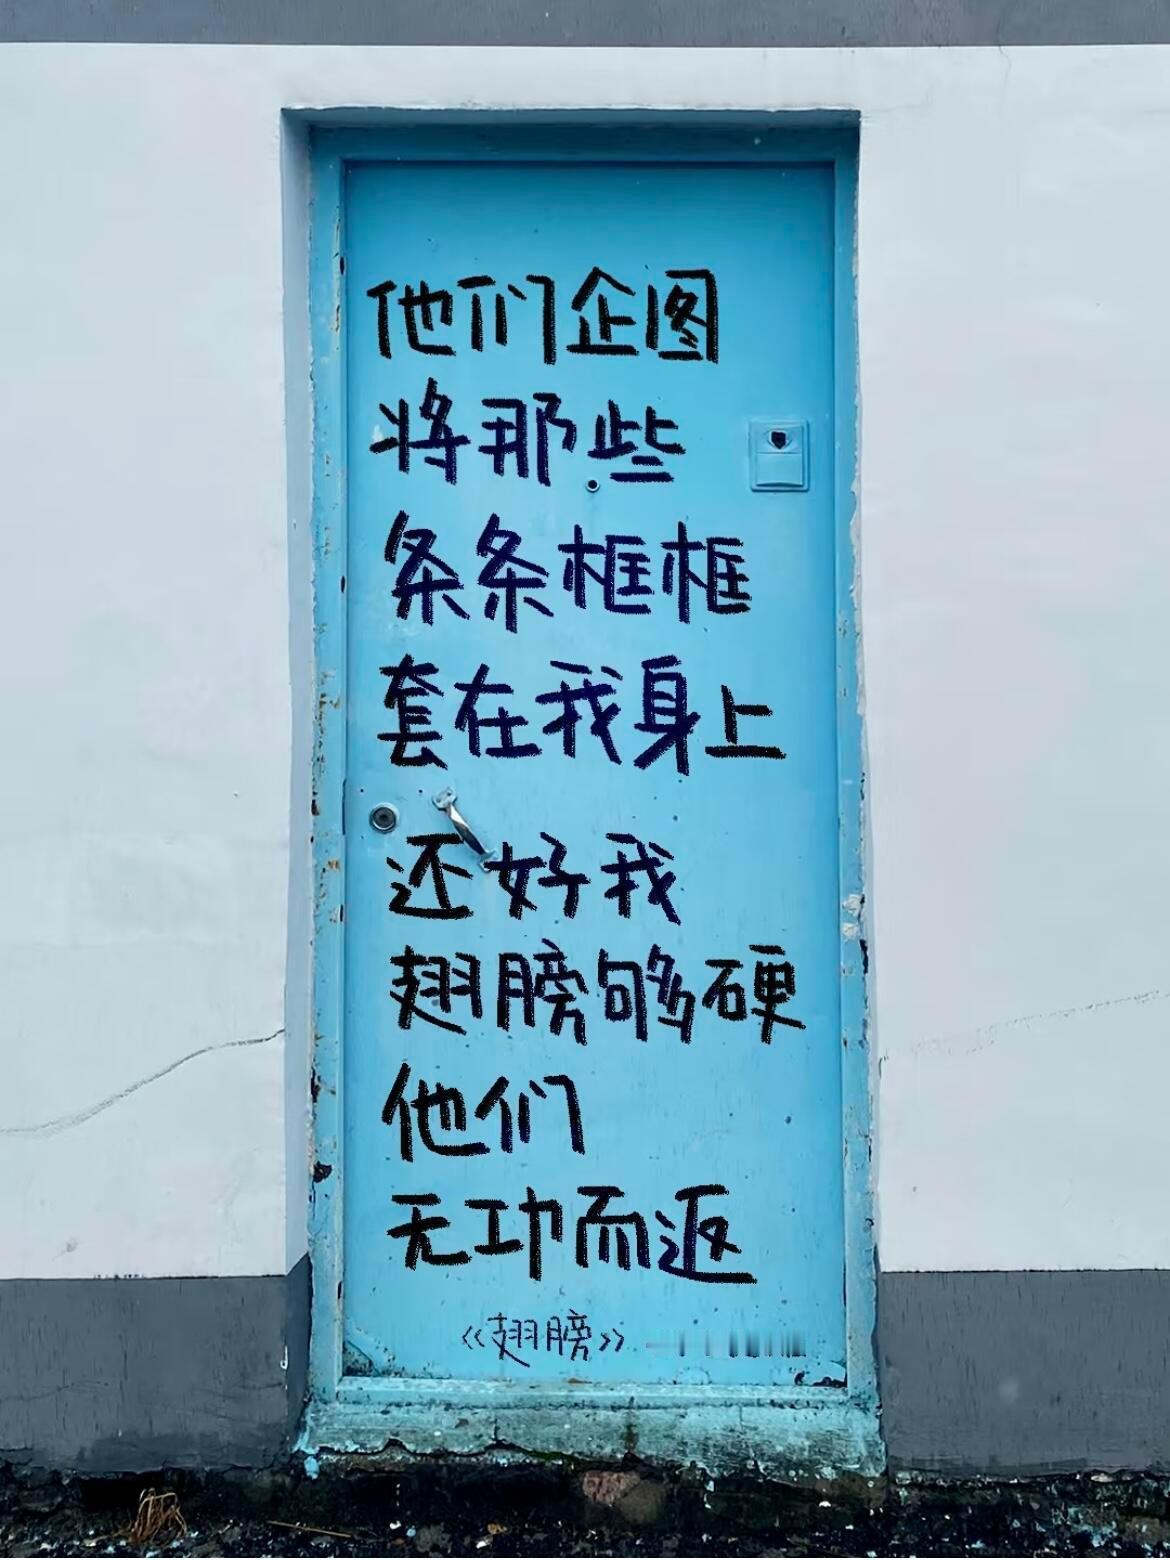 他们企图
将那些
条条框框
套在我身上
还好我
翅膀够硬
他们
无功而返
《翅膀》